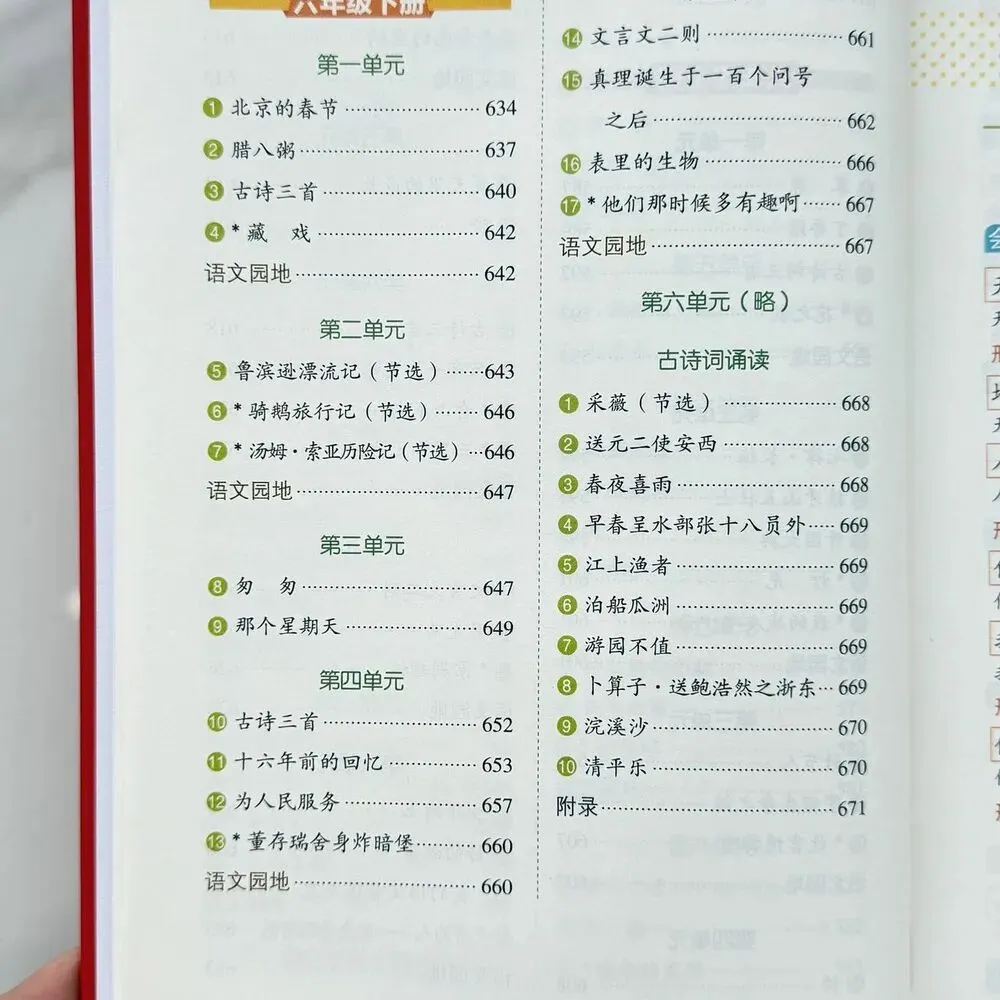 六年级下册
第一单元
1 北京的春节 634
2 腊八粥 637
3 古诗三首 640
4 * 藏 戏 642
语文园地 642
第二单元
5 鲁滨逊漂流记（节选） 643
6 * 骑鹅旅行记（节选） 646
7 * 汤姆·索亚历险记（节选） 646
语文园地 647
第三单元
8 匆 匆 647
9 那个星期天 649
第四单元
10 古诗三首 652
11 十六年前的回忆 653
12 为人民服务 657
13 * 董存瑞舍身炸暗堡 660
语文园地 660
14 文言文二则 661
15 真理诞生于一百个问号
之后 662
16 表里的生物 666
17 * 他们那时候多有趣啊 667
语文园地 667
第六单元（略）
古诗词诵读
1 采薇（节选） 668
2 送元二使安西 668
3 春夜喜雨 668
4 早春呈水部张十八员外 669
5 江上渔者 669
6 泊船瓜洲 669
7 游园不值 669
8 卜算子·送鲍浩然之浙东 669
9 浣溪沙 670
10 清平乐 670
附录 671